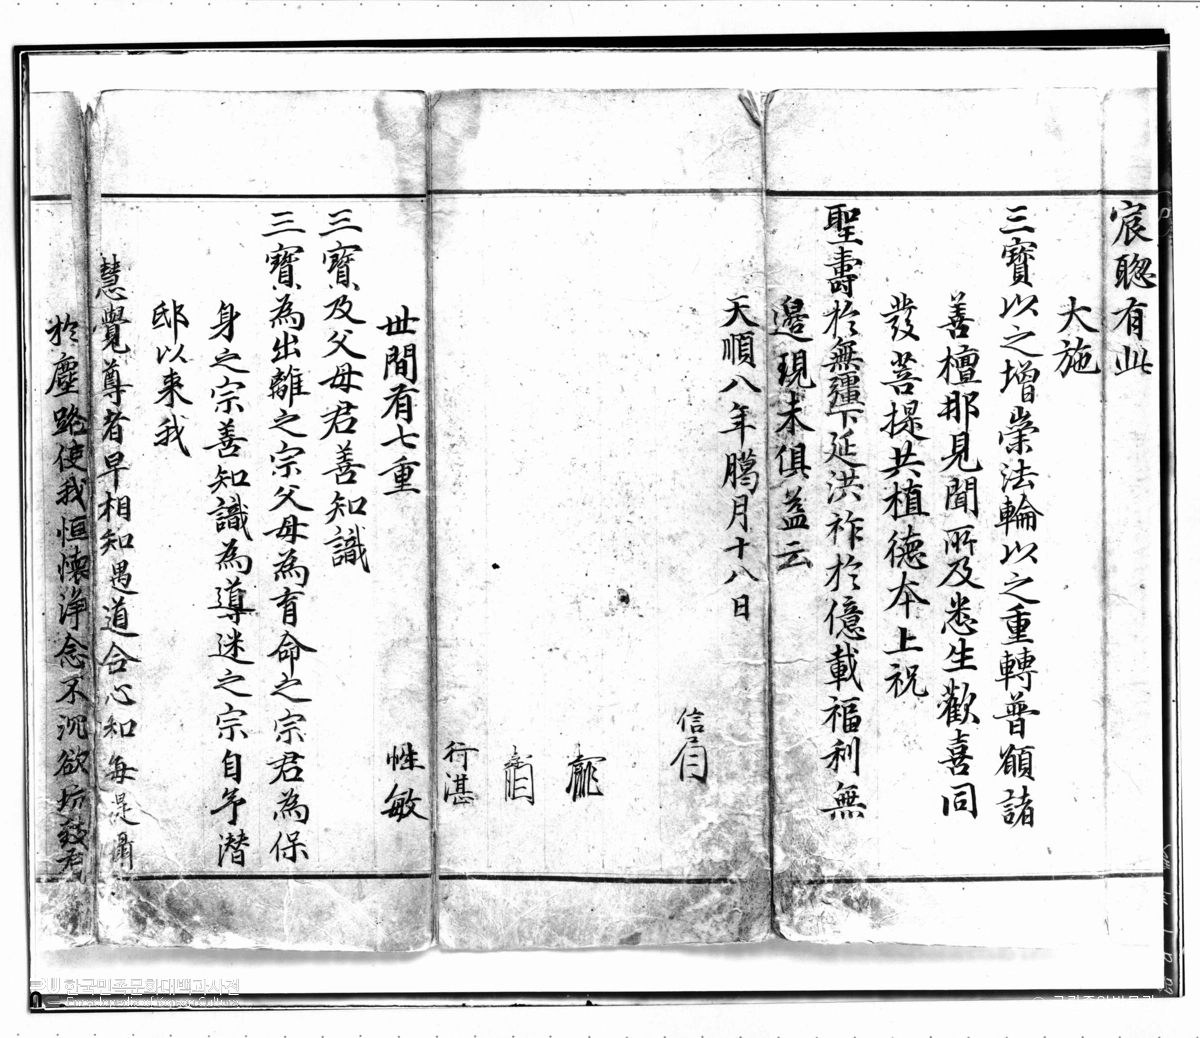 宸聰有此
大施
三寶以之增崇法輪以之重轉普願諸
善檀那見聞所及悉生歡喜同
發菩提共植德本上祝
聖壽於無疆下延洪祚於億載福利無
邊現未俱益云
天順八年臈月十八日
信眉
行湛
性敏
世間有七重
三寶及父母君善知識
三寶為出離之宗父母為育命之宗君為保
身之宗善知識為導迷之宗自予潜
邸以来我
慧覺尊者早相知遇道合心和每提攝
於塵路使我恒懷淨念不沉欲坑致有
한국민족문화대백과사전